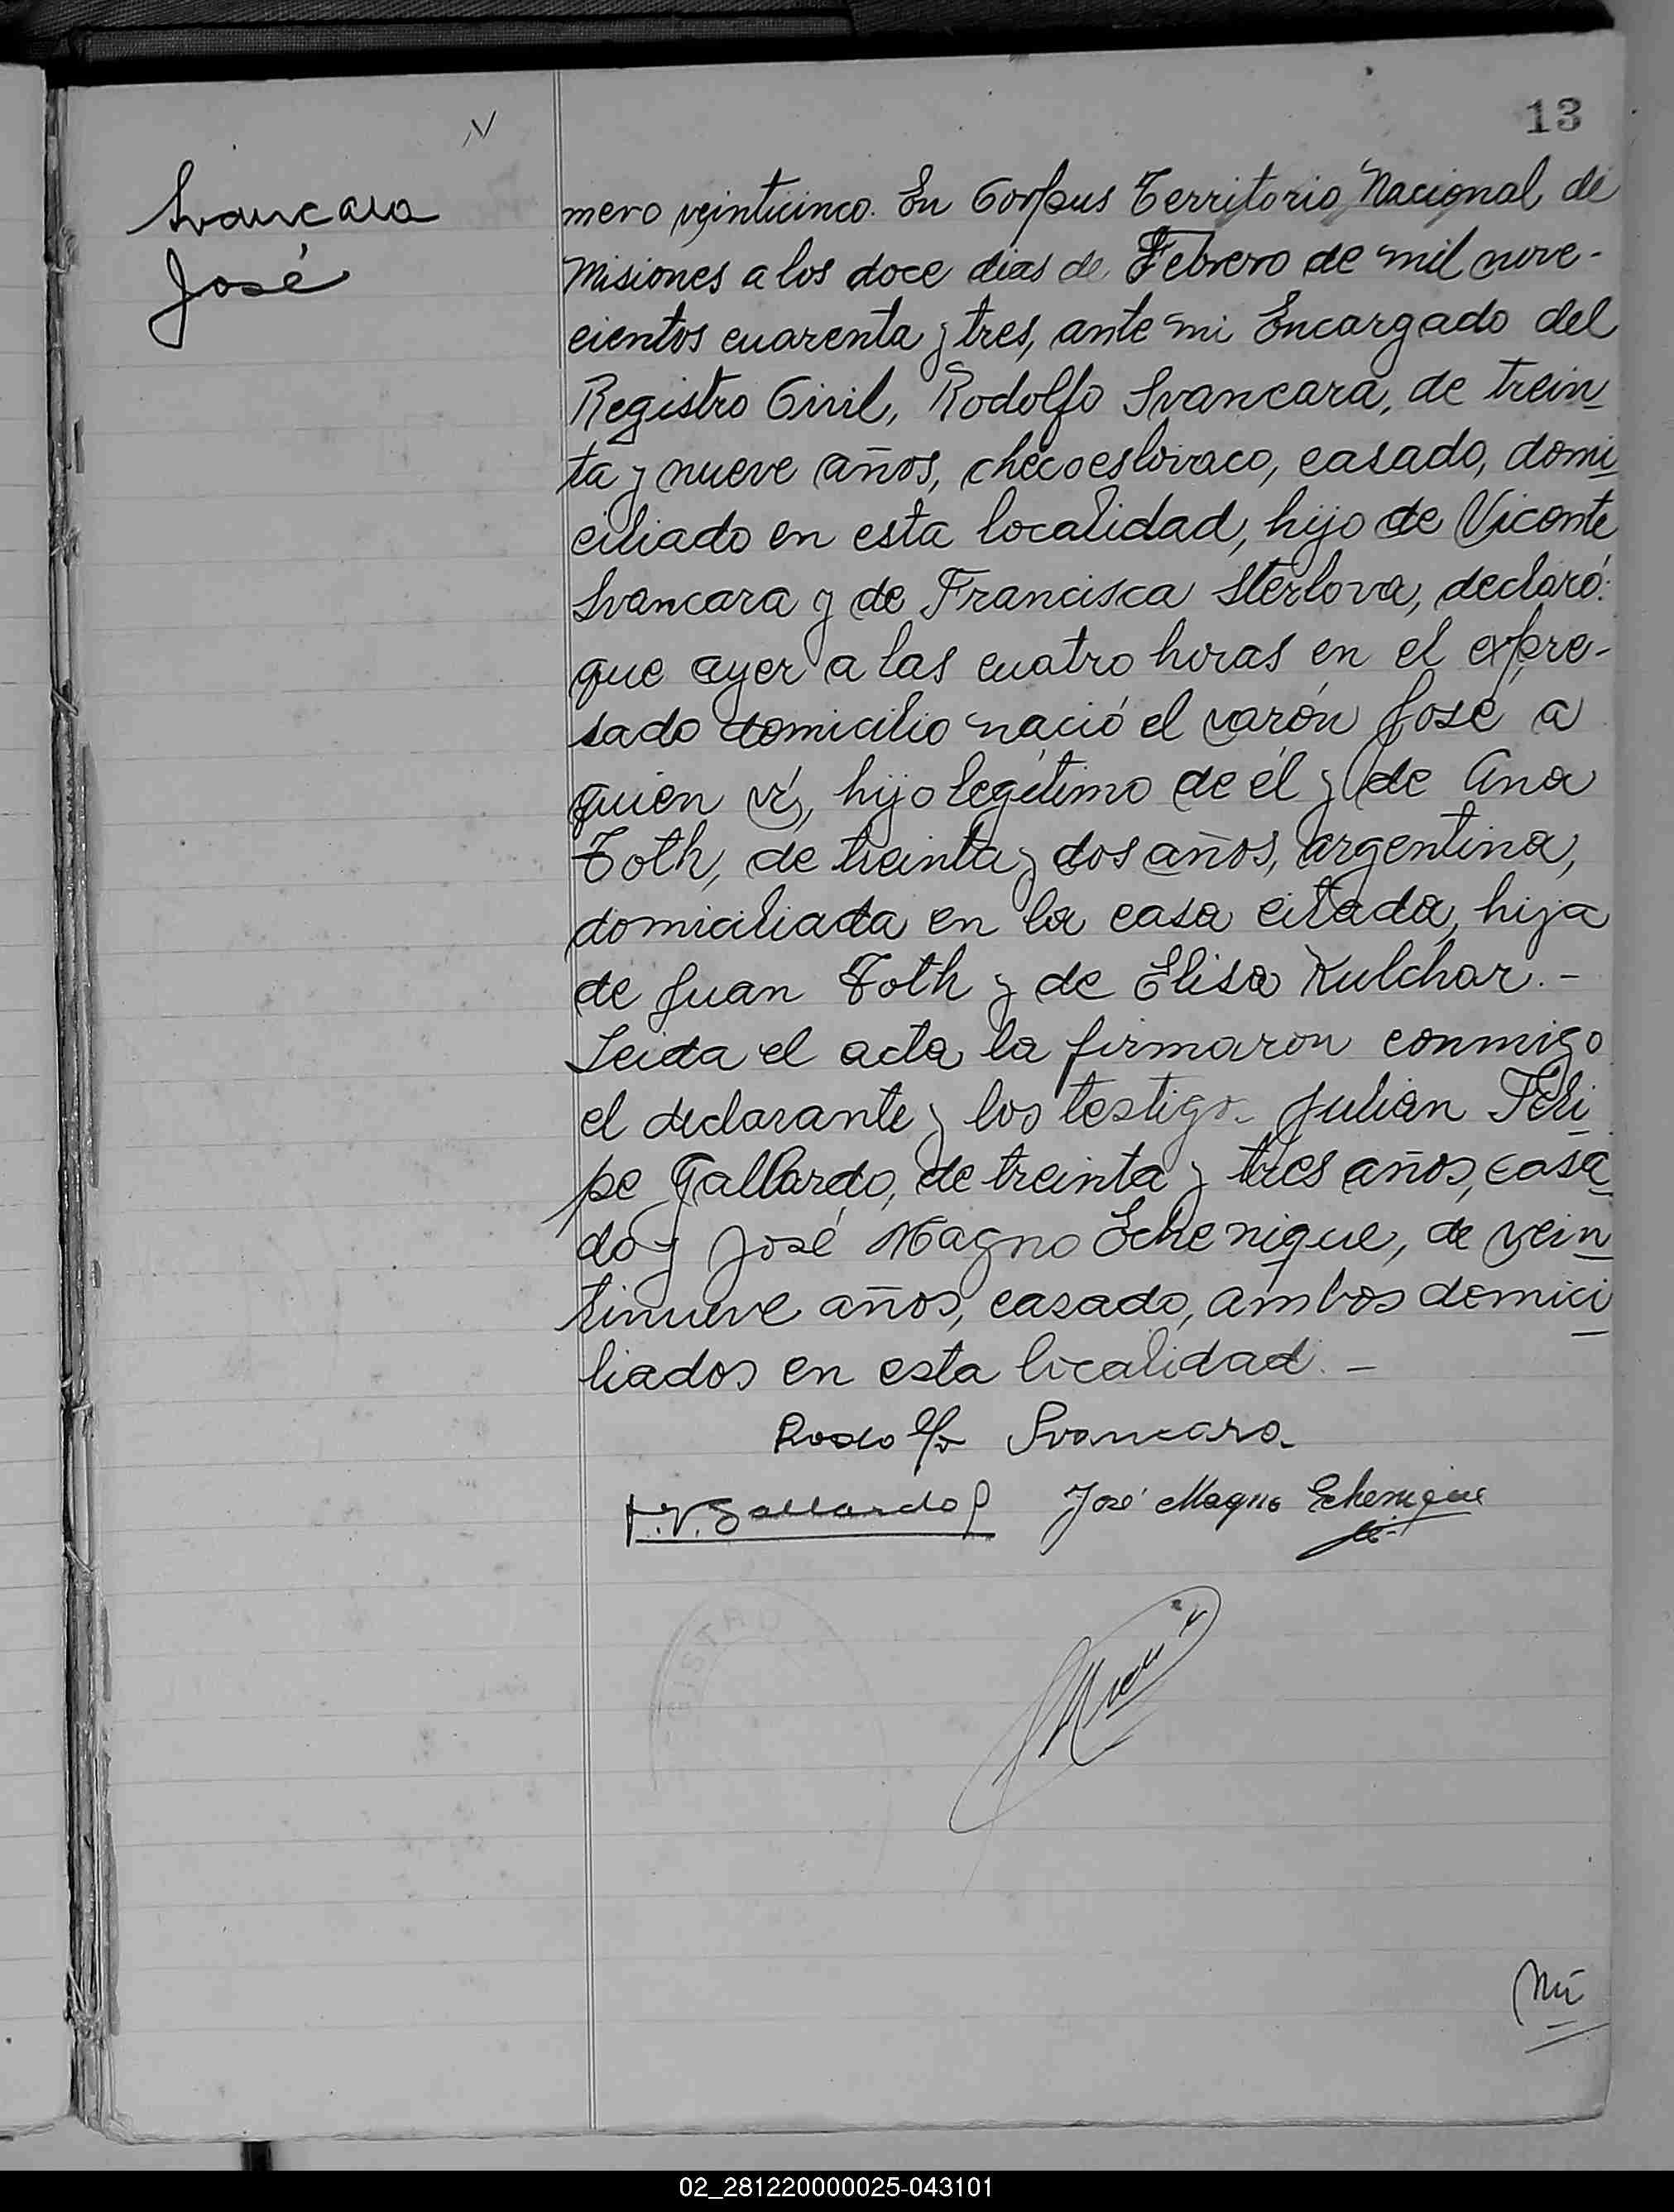 13
Svancara
José
mero veinticinco. En Corpus Territorio Nacional de
Misiones a los doce dias de Febrero de mil nove-
cientos cuarenta y tres, ante mi Encargado del
Registro Civil, Rodolfo Svancara, de trein
ta y nueve años, checoeslovaco, casado, domi
ciliado en esta localidad, hijo de Vicente
Svancara y de Francisca Sterlova, declaró:
que ayer a las cuatro horas en el expre-
sado domicilio nació el varón José a
quien ví, hijo legítimo de él y de Ana
Toth, de treinta y dos años, argentina,
domiciliada en la casa citada, hija
de Juan Toth y de Elisa Kulchar. -
Leida el acta la firmaron conmigo
el declarante y los testigos Julian Feli
pe Gallardo, de treinta y tres años, casa
do y José Magno Echenique, de vein
tinueve años, casado, ambos domici
liados en esta localidad. -
Rodolfo Svancara.
Gallardo José Magno Echenique
Nú
02_281220000025-043101